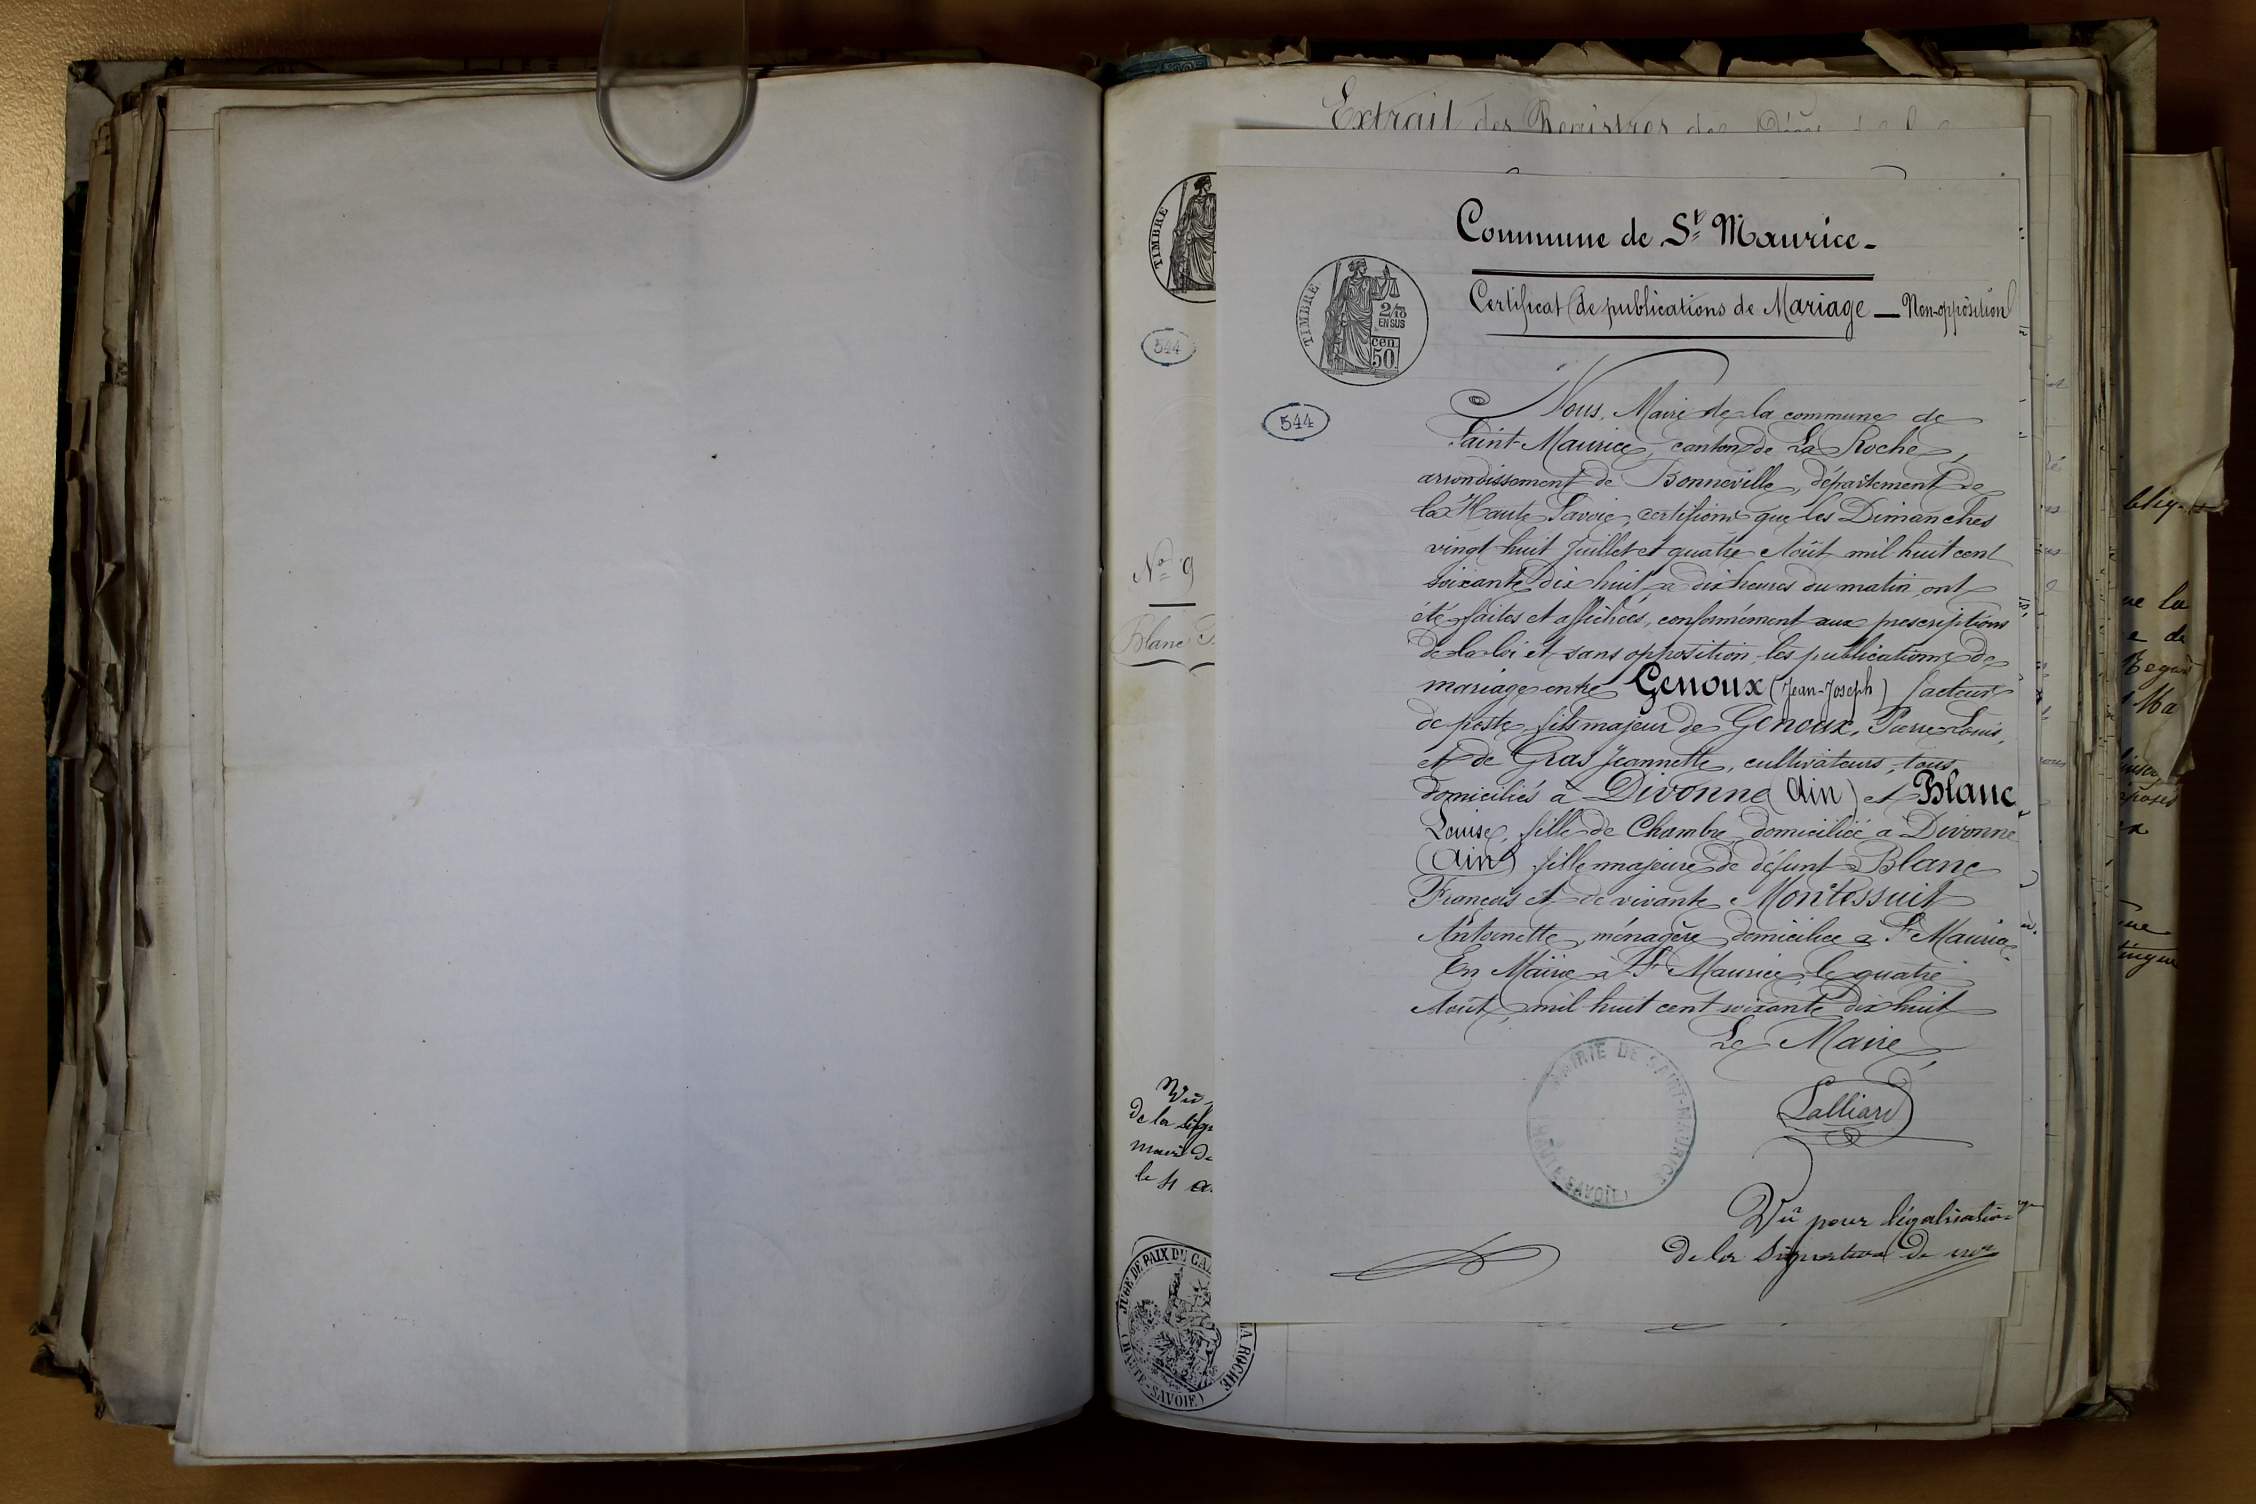 Extrait des Registres des
Commune de St Maurice -
Certificat de publications de Mariage — Non-opposition
TIMBRE
2/10
EN SUS
cen.
50
544
Nous, Maire de la commune de
Saint-Maurice, canton de La Roche,
arrondissement de Bonneville, département de
la Haute Savoie, certifions que les Dimanches
vingt-huit Juillet et quatre Août mil huit cent
soixante dix huit, à dix heures du matin, ont
été faites et affichées, conformément aux prescriptions
de la loi et sans opposition, les publications de
mariage entre Genoux (Jean-Joseph) facteur
de poste, fils majeur de Genoux, Pierre Louis,
et de Gras Jeannette, cultivateurs, tous
domiciliés à Divonne (Ain) et Blanc
Louise, fille de Chambre, domiciliée à Divonne
(Ain) fille majeure de défunt Blanc
François et de vivante Montessuit
Antoinette, ménagère domiciliée à St Maurice.
En Mairie à St Maurice, le quatre
Août, mil huit cent soixante dix huit
Le Maire
Lalliard
MAIRIE DE SAINT-MAURICE
HAUTE-SAVOIE
Vu pour légalisation
de la signature de mr
TIMBRE
544
No 9
Blanc
Vu
de la sign
maire de
le 4 a
JUGE DE PAIX DU CA
LA ROCHE
(HAUTE-SAVOIE)
ue la
e de
Ma